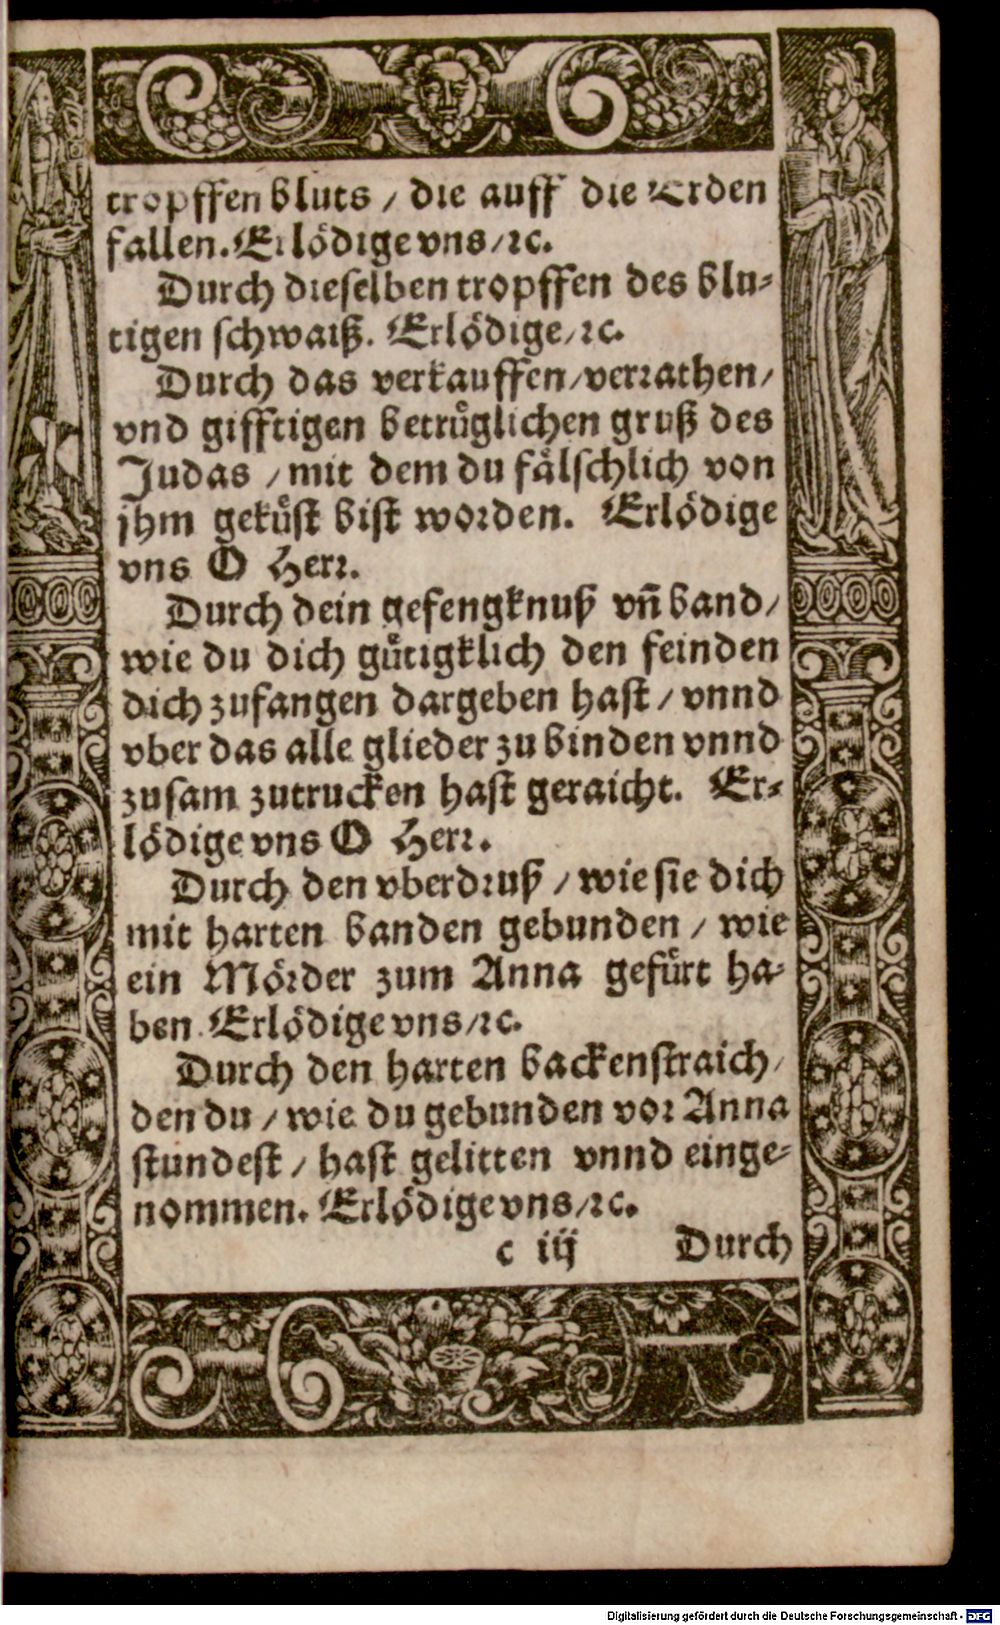 tropffen bluts / die auff die Erden
fallen. Erlödige vns / ꝛc.
Durch dieselben tropffen des blu⸗
tigen schwaiß. Erlödige / ꝛc.
Durch das verkauffen / verrathen /
vnd gifftigen betruͤglichen gruß des
Judas / mit dem du faͤlschlich von
jhm gekuͤst bist worden. Erlödige
vns O Herr.
Durch dein gefengknuß vñ band /
wie du dich guͤtigklich den feinden
dich zufangen dargeben hast / vnnd
vber das alle glieder zu binden vnnd
zusam zutrucken hast geraicht. Er⸗
lödige vns O Herr.
Durch den vberdruß / wie sie dich
mit harten banden gebunden / wie
ein Mörder zum Anna gefuͤrt ha⸗
ben. Erlödige vns / ꝛc.
Durch den harten backenstraich /
den du / wie du gebunden vor Anna
stundest / hast gelitten vnnd einge⸗
nommen. Erlödige vns / ꝛc.
c iij Durch
Digitalisierung gefördert durch die Deutsche Forschungsgemeinschaft - DFG